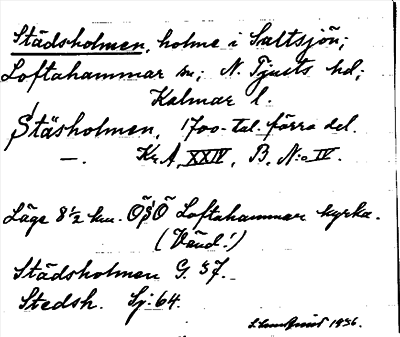 Städsholmen, holme i Saltsjön;
Loftahammar sn; N. Tjusts hd;
Kalmar l.
Stäsholmen, 1700-tal. förra del.
—. Kr. A, XXIV, B, N:o IV.
Läge 8½ km. ÖSÖ Loftahammar kyrka.
(Vänd!)
Städsholmen G. 37.
Stedsh. Sj: 64.
1936.